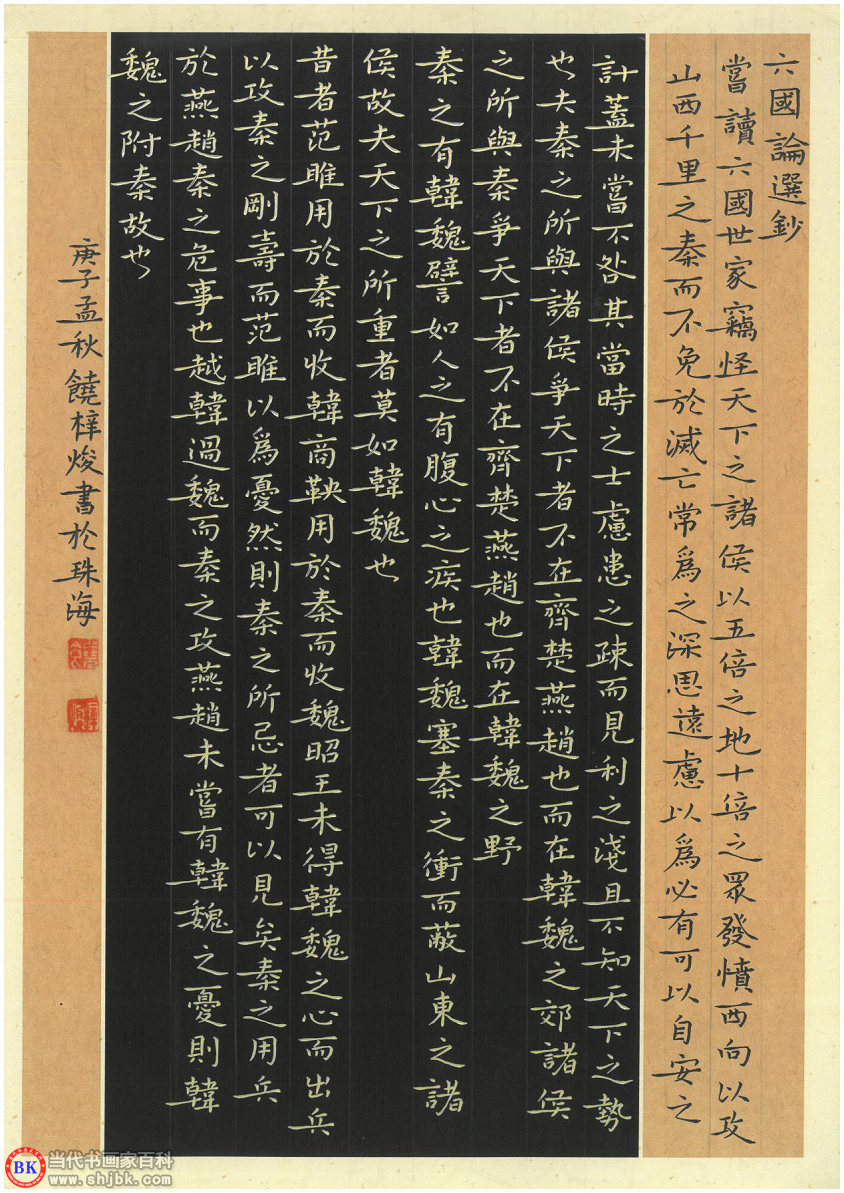 六國論選鈔
嘗讀六國世家竊怪天下之諸侯以五倍之地十倍之眾發憤西向以攻
山西千里之秦而不免於滅亡常為之深思遠慮以為必有可以自安之
計蓋未嘗不咎其當時之士慮患之疎而見利之淺且不知天下之勢
也夫秦之所與諸侯爭天下者不在齊楚燕趙也而在韓魏之郊諸侯
之所與秦爭天下者不在齊楚燕趙也而在韓魏之野
秦之有韓魏譬如人之有腹心之疾也韓魏塞秦之衝而蔽山東之諸
侯故夫天下之所重者莫如韓魏也
昔者范雎用於秦而收韓商鞅用於秦而收魏昭王未得韓魏之心而出兵
以攻秦之剛壽而范雎以為憂然則秦之所忌者可以見矣秦之用兵
於燕趙秦之危事也越韓過魏而秦之攻燕趙未嘗有韓魏之憂則韓
魏之附秦故也
庚子孟秋饒梓焌書於珠海
BK 当代书画家百科
www.shjbk.com